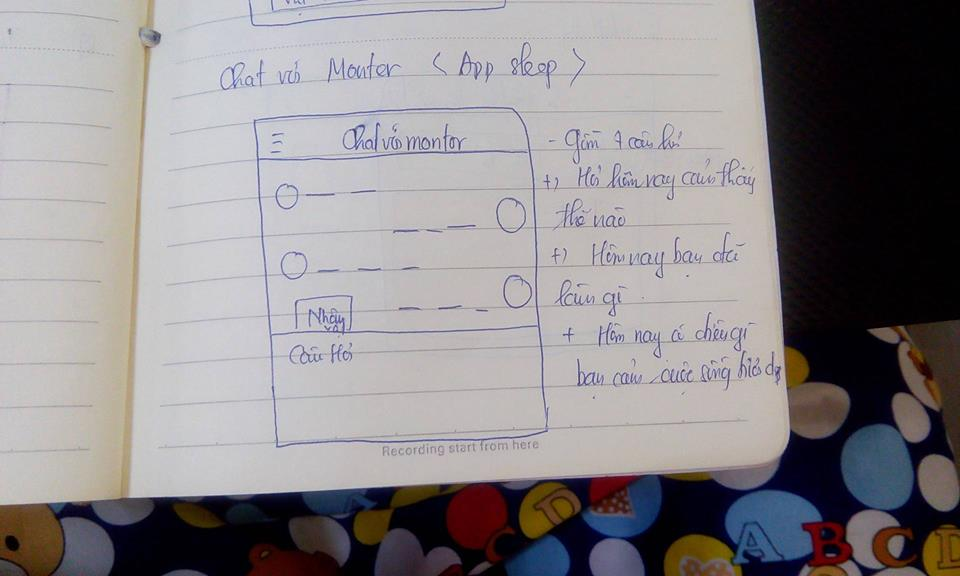 Chat với Monter < App sleep >
Chat với montor
- Gồm 4 câu hỏi
+) Hỏi hôm nay cảm thấy
thế nào
+) Hôm nay bạn đã
làm gì
+ Hôm nay có chuyện gì
bạn cảm cuộc sống
Nhân
vật
Câu Hỏi
Recording start from here
A B C D